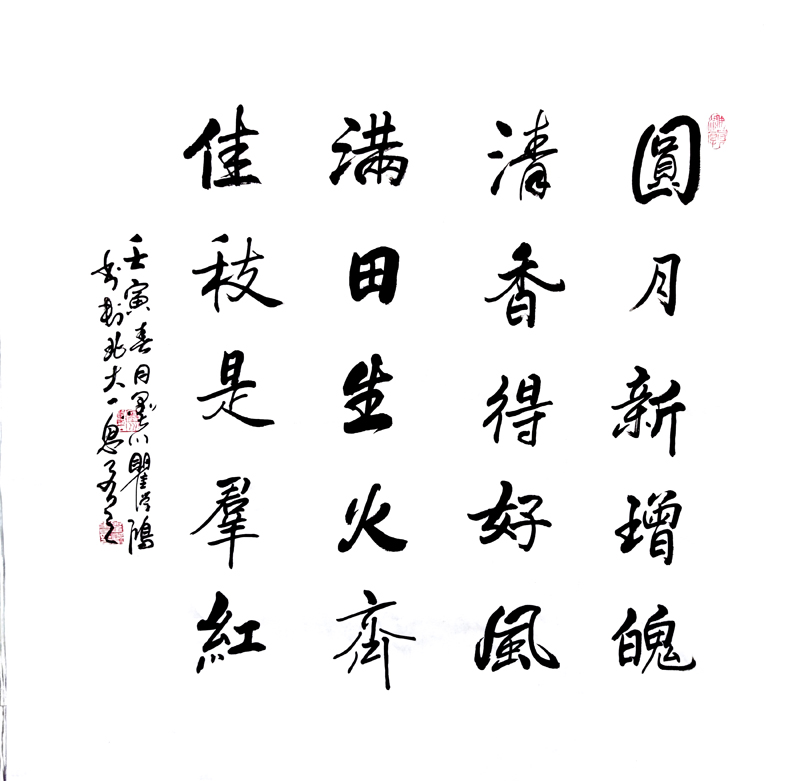 圓月新增魄
清香得好風
滿田生火齊
佳枝是羣紅
壬寅春月墨
北大一